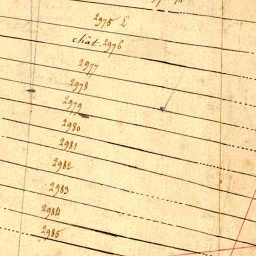 2975 L
chât. 2976
2977
2978
2979
2980
2981
2982
2983
2984
2985